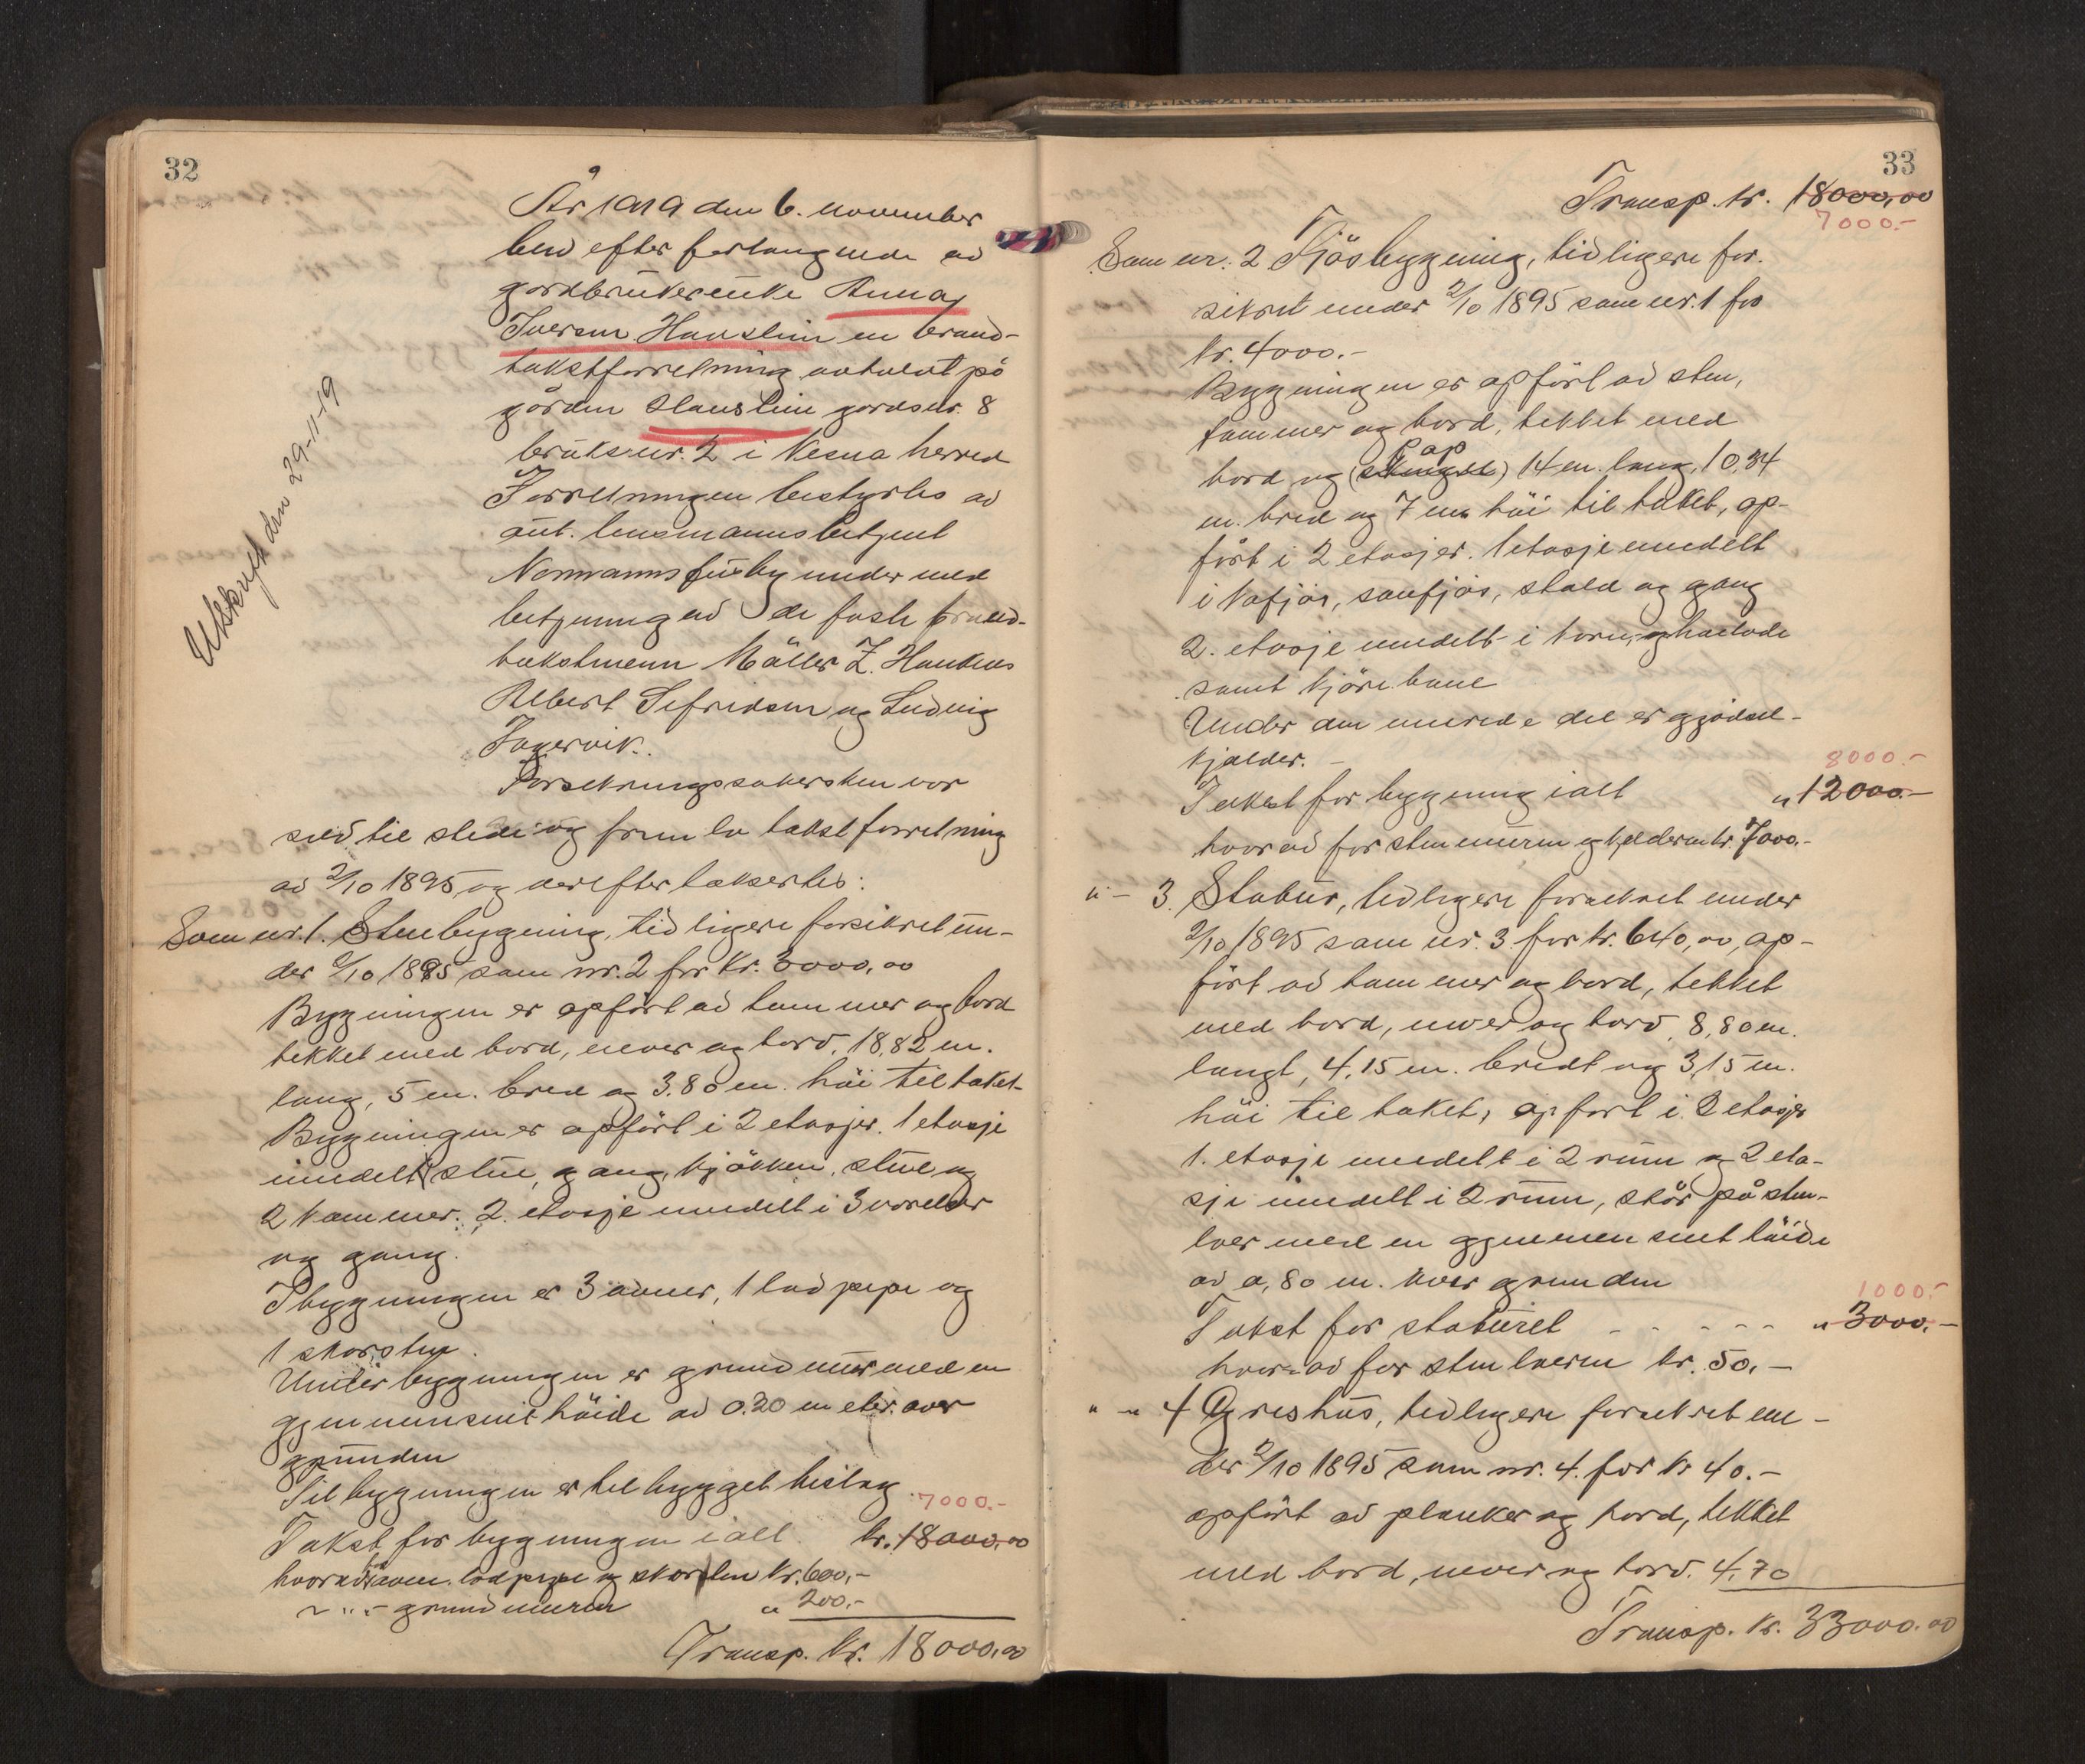 32
År 1919 den 6. november
blev efter forlangende av
gårdbrukerenke Anna
Iversen Hanslien en brand-
takstforretning avholdt på
gården Hanslien gårdsnr. 8
bruksnr. 2 i Nesna herred
Forretningen bestyrtes av
aut. lensmannsbetjent
Normanns fuby under med
betjening av de faste brand-
takstmenn Møller Z. Hankens
Albert Sefridsen og Ludvig
Forsekringssøkersken var
selv til stede og fremla takstforretning
av 2/10 1895 og derefter takseertes:
Som nr. 1. Stuebygning, tidligere forsikret un-
der 2/10 1895 som nr. 2 for kr. 3000,00
Bygningen er opført av tømmer og bord
tekket med bord, never og torv, 18,82 m.
lang, 5 m. bred og 3.80 m. høi til taket.
Bygningen er opført i 2 etasjer. 1 etasje
inndelt i stue, gang, kjøkken, stue og
2 kammer. 2. etasje inndelt i 3 værelser
og gang.
I bygningen er 3 ovner, 1 lodpipe og
1 skorsten.
Under bygningen er grundmur med en
gjennemsnits høide av 0.20 meter over
grunden
Til bygningen er tilbygget bislag.
7000.-
Takst for bygningen i alt kr. 18000,00
hvorav for ovne, lodpipe og skorsten kr. 600,-
~ " - grundmuren " 200.-
Transp. kr. 18000,00
Utskrift den 29-11-19
33
Transp. kr. 18000,00
7000.-
Som nr. 2 Fjøsbygning, tidligere for-
sikret under 2/10 1895 som nr. 1 for
kr. 4000.-
Bygningen er opført av sten,
tømmer og bord, tekket med
pap
bord og () 14 m. lang, 10,34
m. bred og 7 m høi til taket, op-
ført i 2 etasjer. 1 etasje inndelt
i kufjøs, saufjøs, stald og gang
2. etasje inndelt i korn, og høilade
samt kjørebane
Under den murede del er gjødsel-
kjelder.
8000.-
Takst for bygning i alt " 12000.-
hvorav for stenmuren og kjelderen kr. 7000.-
" - 3. Stabur, tidligere forsekret under
2/10 1895 som nr. 3 for kr. 640,00, op-
ført av tømmer og bord, tekket
med bord, never og torv, 8,80 m.
langt, 4,15 m. bredt og 3,15 m.
høi til taket, opført i 2 etasjer
1. etasje inndelt i 2 rum og 2 eta-
sje inndelt i 2 rum, står på sten-
loer med en gjennemsnit høide
av 0,80 m. over grunden
1000.-
Takst for staburet - - - - - " 3000.-
hvorav for stenloerne kr. 50,-
" - " 4 Grishus, tidligere forsekret un-
der 2/10 1895 som nr. 4. for kr 40.-
opført av planker og bord, tekket
med bord, never og torv. 4,70
Transp. kr. 33000.00